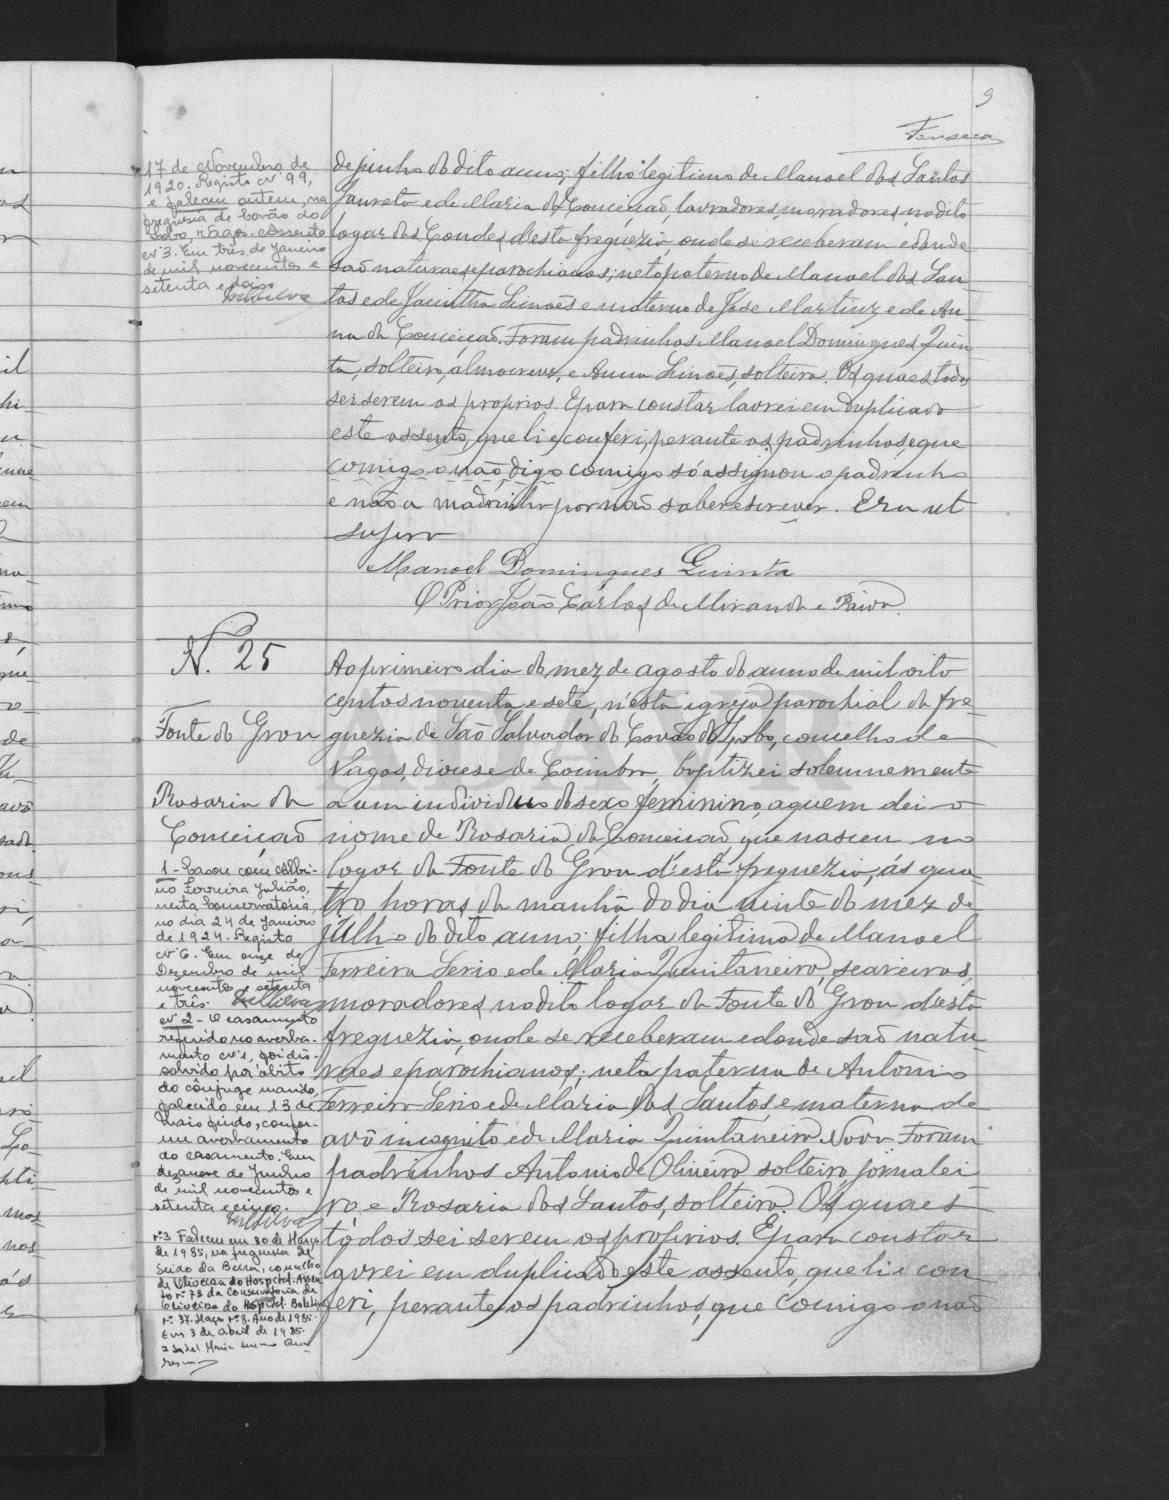 9
Fonseca
17 de Novembro de
1920. Registo nº 99,
e faleceu ontem, na
freguesia de Covão do
Lobo, Vagos. Assento
nº 3. Em três de Janeiro
de mil novecentos e
setenta e dois
de junho do dito anno; filho legitimo de Manoel dos Santos
Laureto e de Maria da Conceicaõ, lavradores, moradores no dito
logar dos Condes d'esta freguezia, onde se receberam e donde
saõ naturaes e parochianos; neto paterno de Manoel dos San-
tos e de Jacintha Simoẽs e materno de Jose Martins e de An-
na da Conceicaõ. Foram padrinhos Manoel Domingues Quin
ta, solteiro, almocreve, e Anna Simoẽs, solteira. Os quaes todos
sei serem os proprios. E para constar lavrei em duplicado
este assento, que li e conferi, perante os padrinhos, e que
comigo o naõ, digo comigo só assignou o padrinho
e naõ a madrinha por naõ saber escrever. Era ut
supra
Manoel Domingues Quinta
O Prior João Carlos de Miranda e Paiva.
N. 25
Fonte do Grou
Rosaria da
Conceicaõ
Ao primeiro dia do mez de agosto do anno de mil oito
centos noventa e sete, n'esta igreja parochial da fre-
guezia de São Salvador do Covão do Lobo, concelho de
Vagos, diocese de Coimbra, baptizei solemnemente
a um individuo do sexo feminino, a quem dei o
nome de Rosaria da Conceicaõ, que nasceu no
logar da Fonte do Grou d'esta freguezia, ás qua-
tro horas da manhã do dia vinte do mez de
Julho do dito anno; filha legitima de Manoel
Ferreira Serio e de Maria Quintaneira, seareiros,
moradores no dito logar da Fonte do Grou d'esta
freguezia, onde se receberam e donde saõ natu-
raes e parochianos; neta paterna de Antonio
Ferreira Serio e de Maria dos Santos, e materna de
avô incognito e de Maria Quintaneira Nova. Foram
padrinhos Antonio de Oliveira solteiro, jornalei
ro, e Rosaria dos Santos, solteira. Os quaes
todos sei serem os proprios. E para constar
lavrei em duplicado este assento, que li e con
feri, perante os padrinhos, que comigo o naõ
1 - Casou com Albi-
no Ferreira Julião,
nesta Conservatória,
no dia 24 de Janeiro
de 1924. Registo
nº 6. Em onze de
Dezembro de mil
novecentos e setenta
e três.
nº 2 - O casamento
referido no averba-
mento nº 1, foi dis-
solvido por óbito
do cônjuge marido,
falecido em 13 de
Maio findo, confor-
me averbamento
ao casamento. Em
dezanove de Junho
de mil novecentos e
setenta e cinco.
nº 3 Faleceu em 30 de Março
de 1985, na freguesia de
Seixo da Beira, concelho
de Oliveira do Hospital. Assen
to nº 78 da Conservatória de
Oliveira do Hospital. Boletim
nº 37. Maço nº 8. Ano de 1985.
Em 3 de Abril de 1985.
ADAVR